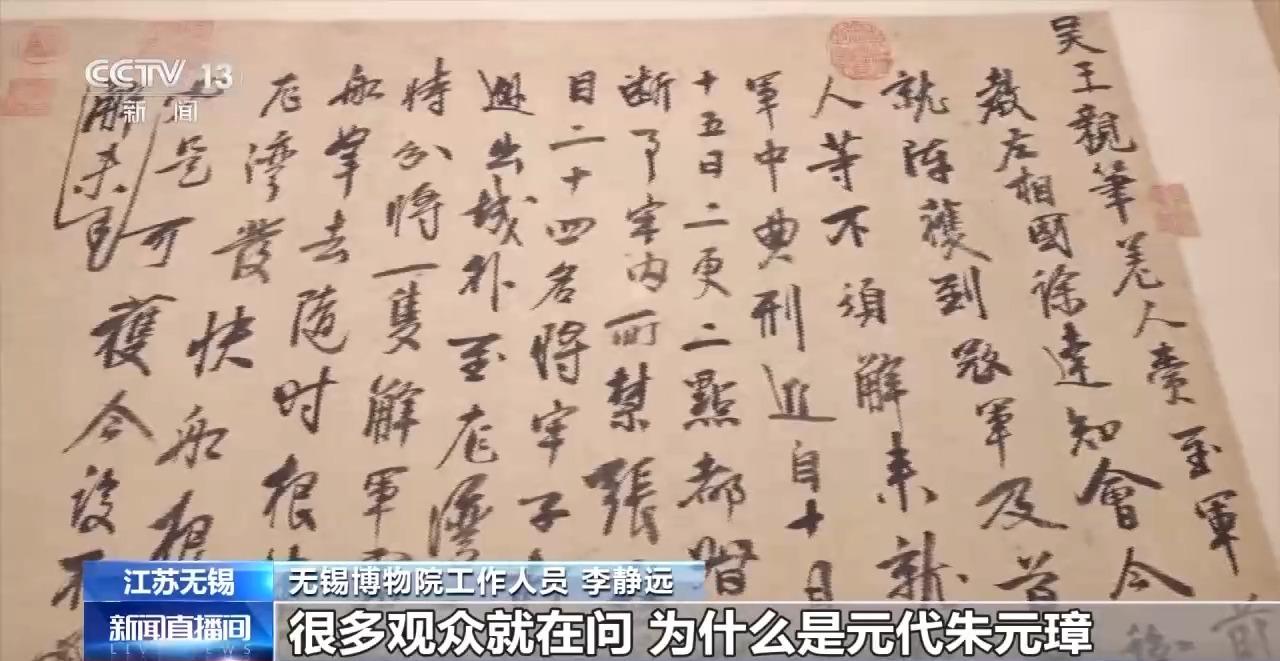 CCTV 13
新闻
吴王親筆差人賫至軍前
教左相國徐達知會今後
就陣獲到寇軍及首
人等不須解来就
軍中典刑進自十月
十五日二更二點都督
断了牢内所禁張
目二十四名将牢子
遜出城外至龙灣
特分将一隻解軍
船拏去随时根
龙灣發快船根
是可獲今後不
解来
江苏无锡
无锡博物院工作人员 李静远
新闻直播间
LIVE NEWS
很多观众就在问 为什么是元代朱元璋